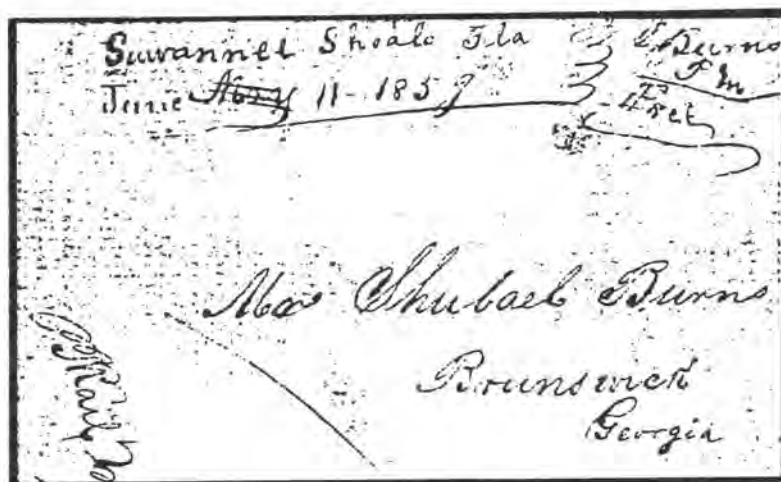 Suwannee Shoals Fla
June May 11 - 1857
Burns
P M
Mr Shubael Burns
Brunswick
Georgia
Mail